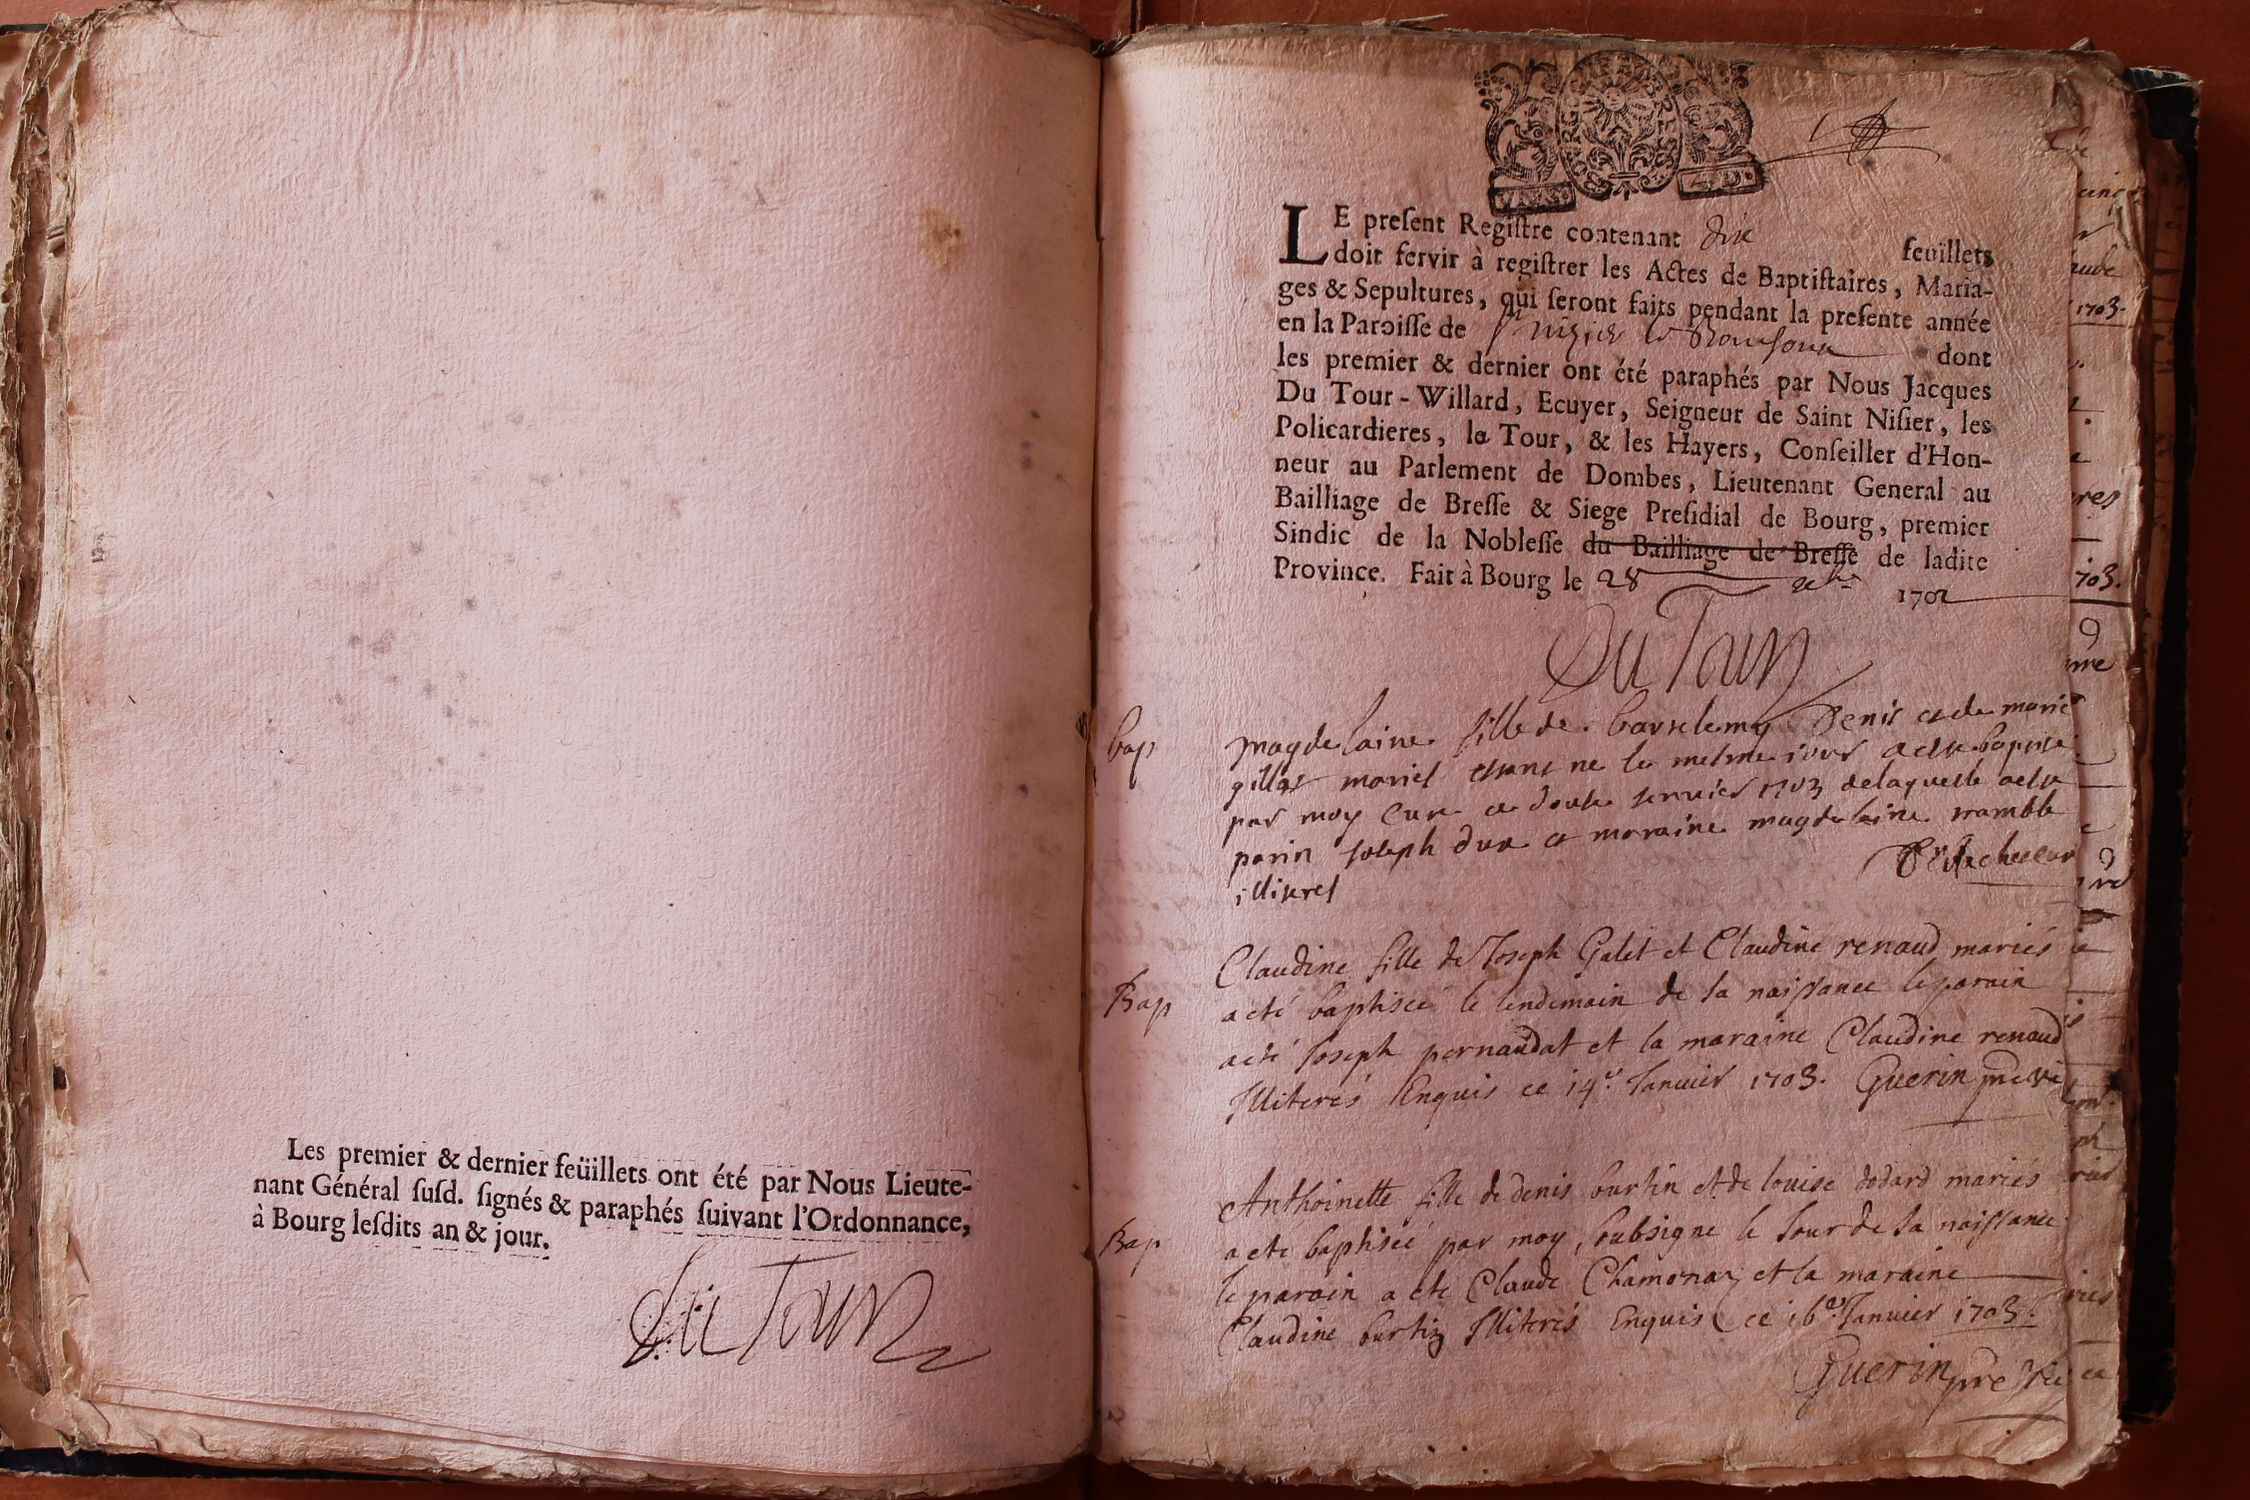 Les premier & dernier feüillets ont été par Nous Lieute-
nant Général ſuſd. ſignés & paraphés ſuivant l'Ordonnance,
à Bourg leſdits an & jour.
Du Tour
LE preſent Regiſtre contenant dix feuillets
doit ſervir à regiſtrer les Actes de Baptiſtaires, Maria-
ges & Sepultures, qui ſeront faits pendant la preſente année
en la Paroiſſe de St nizier le Bouchoux dont
les premier & dernier ont été paraphés par Nous Jacques
Du Tour-Willard, Ecuyer, Seigneur de Saint Niſier, les
Policardieres, la Tour, & les Hayers, Conſeiller d'Hon-
neur au Parlement de Dombes, Lieutenant General au
Bailliage de Breſſe & Siege Preſidial de Bourg, premier
Sindic de la Nobleſſe du Bailliage de Breſſe de ladite
Province. Fait à Bourg le 28 1702
Du Tour
bap
magdelaine fille de bartelemy Denis et de marie
gillet mariés estant ne le mesme iour a este baptise
par moy cure ce douse 1703 de laquelle a este
parin Joseph dux et moraine magdelaine
illiterés
Bap
Claudine fille de Joseph Galet et Claudine renaud mariés
a eté baptiseé le lendemain de sa naissance le parain
a eté Joseph pernaudat et la maraine Claudine renaud
Illiterés Enquis ce 14e Janvier 1703. Guerin pre vic
Bap
Anthoinette fille de denis burtin et de louise dodard mariés
a ete baptiseé par moy soubsigne le Jour de sa naissance
le parain a ete Claude Chamonaz et la maraine
Claudine burtin Illiterés Enquis ce 16e Janvier 1703.
Guerin pre Vic